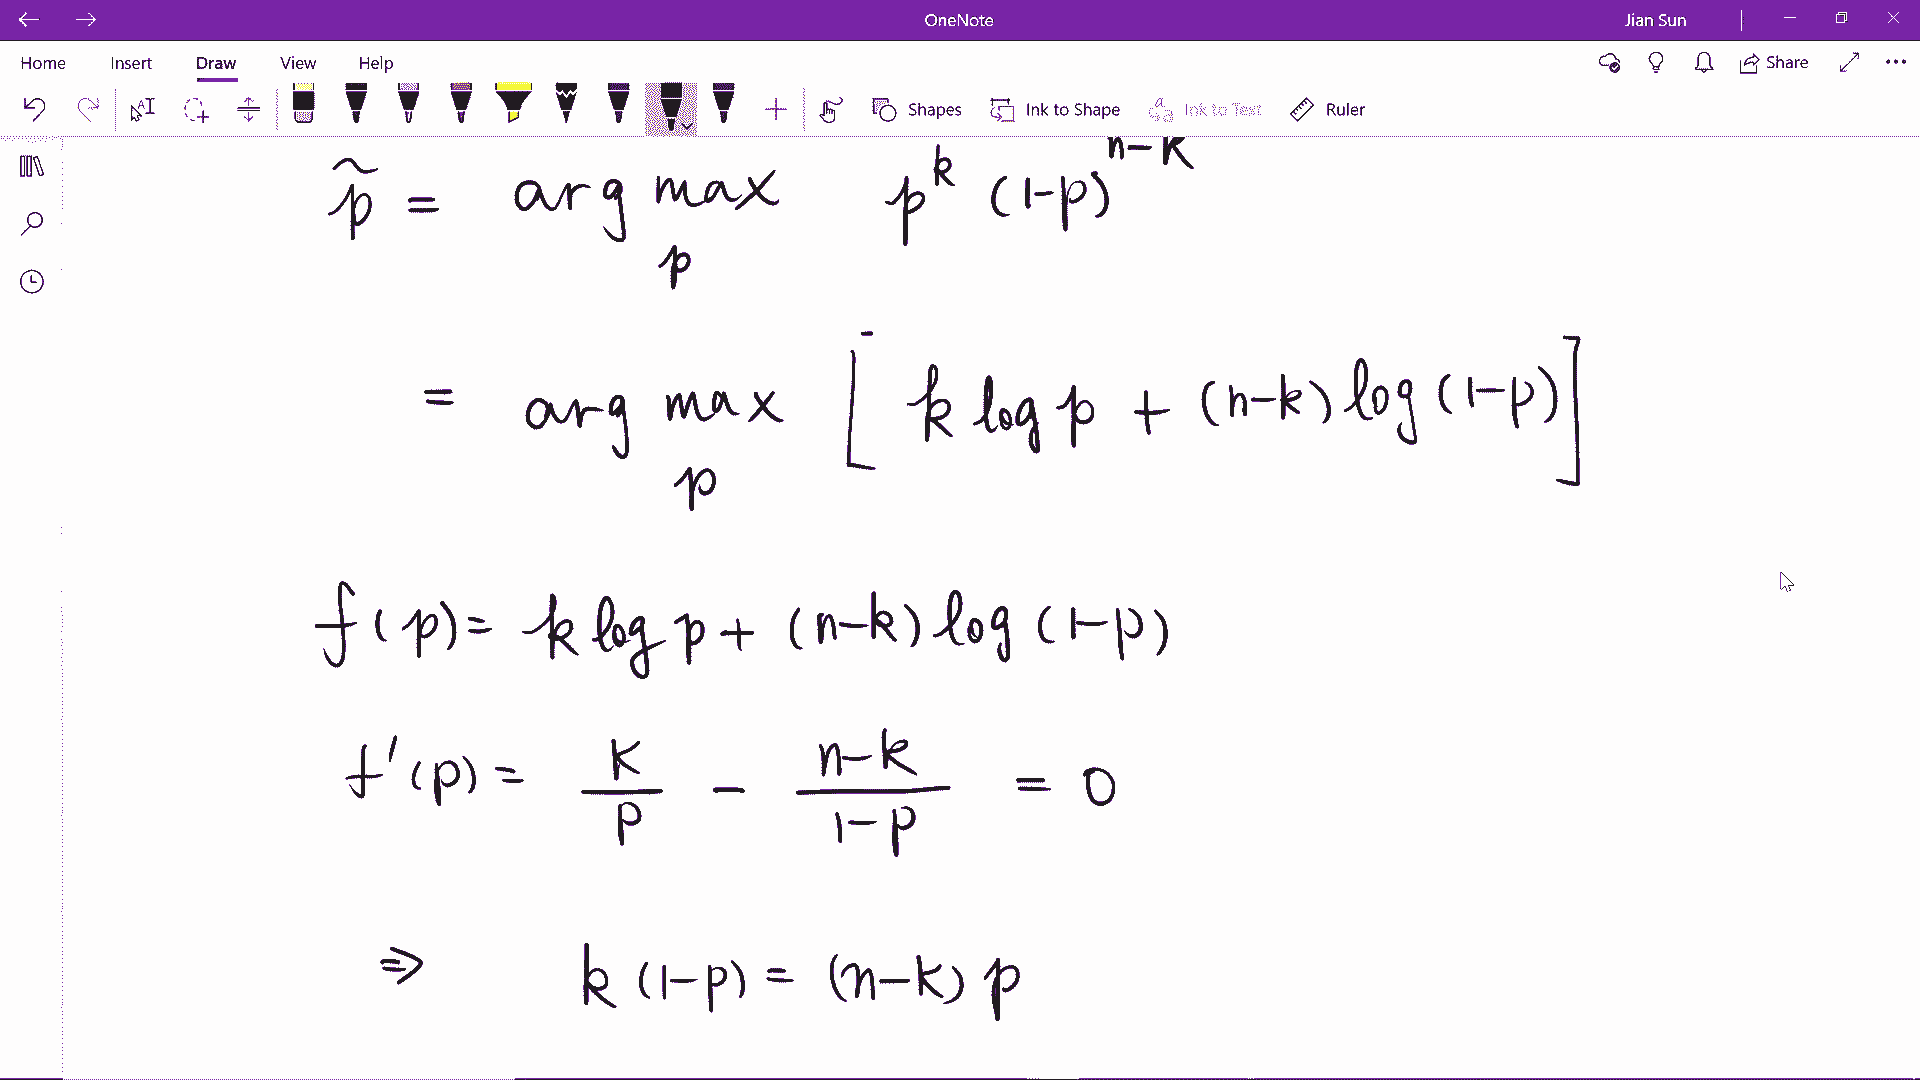 OneNote
Jian Sun
Home Insert Draw View Help
Share
Shapes Ink to Shape Ink to Text Ruler
p̃ = arg max p^k (1-p)^{n-k}
p
= arg max [ k log p + (n-k) log (1-p) ]
p
f(p) = k log p + (n-k) log (1-p)
f'(p) = k/p - (n-k)/(1-p) = 0
⇒ k (1-p) = (n-k) p